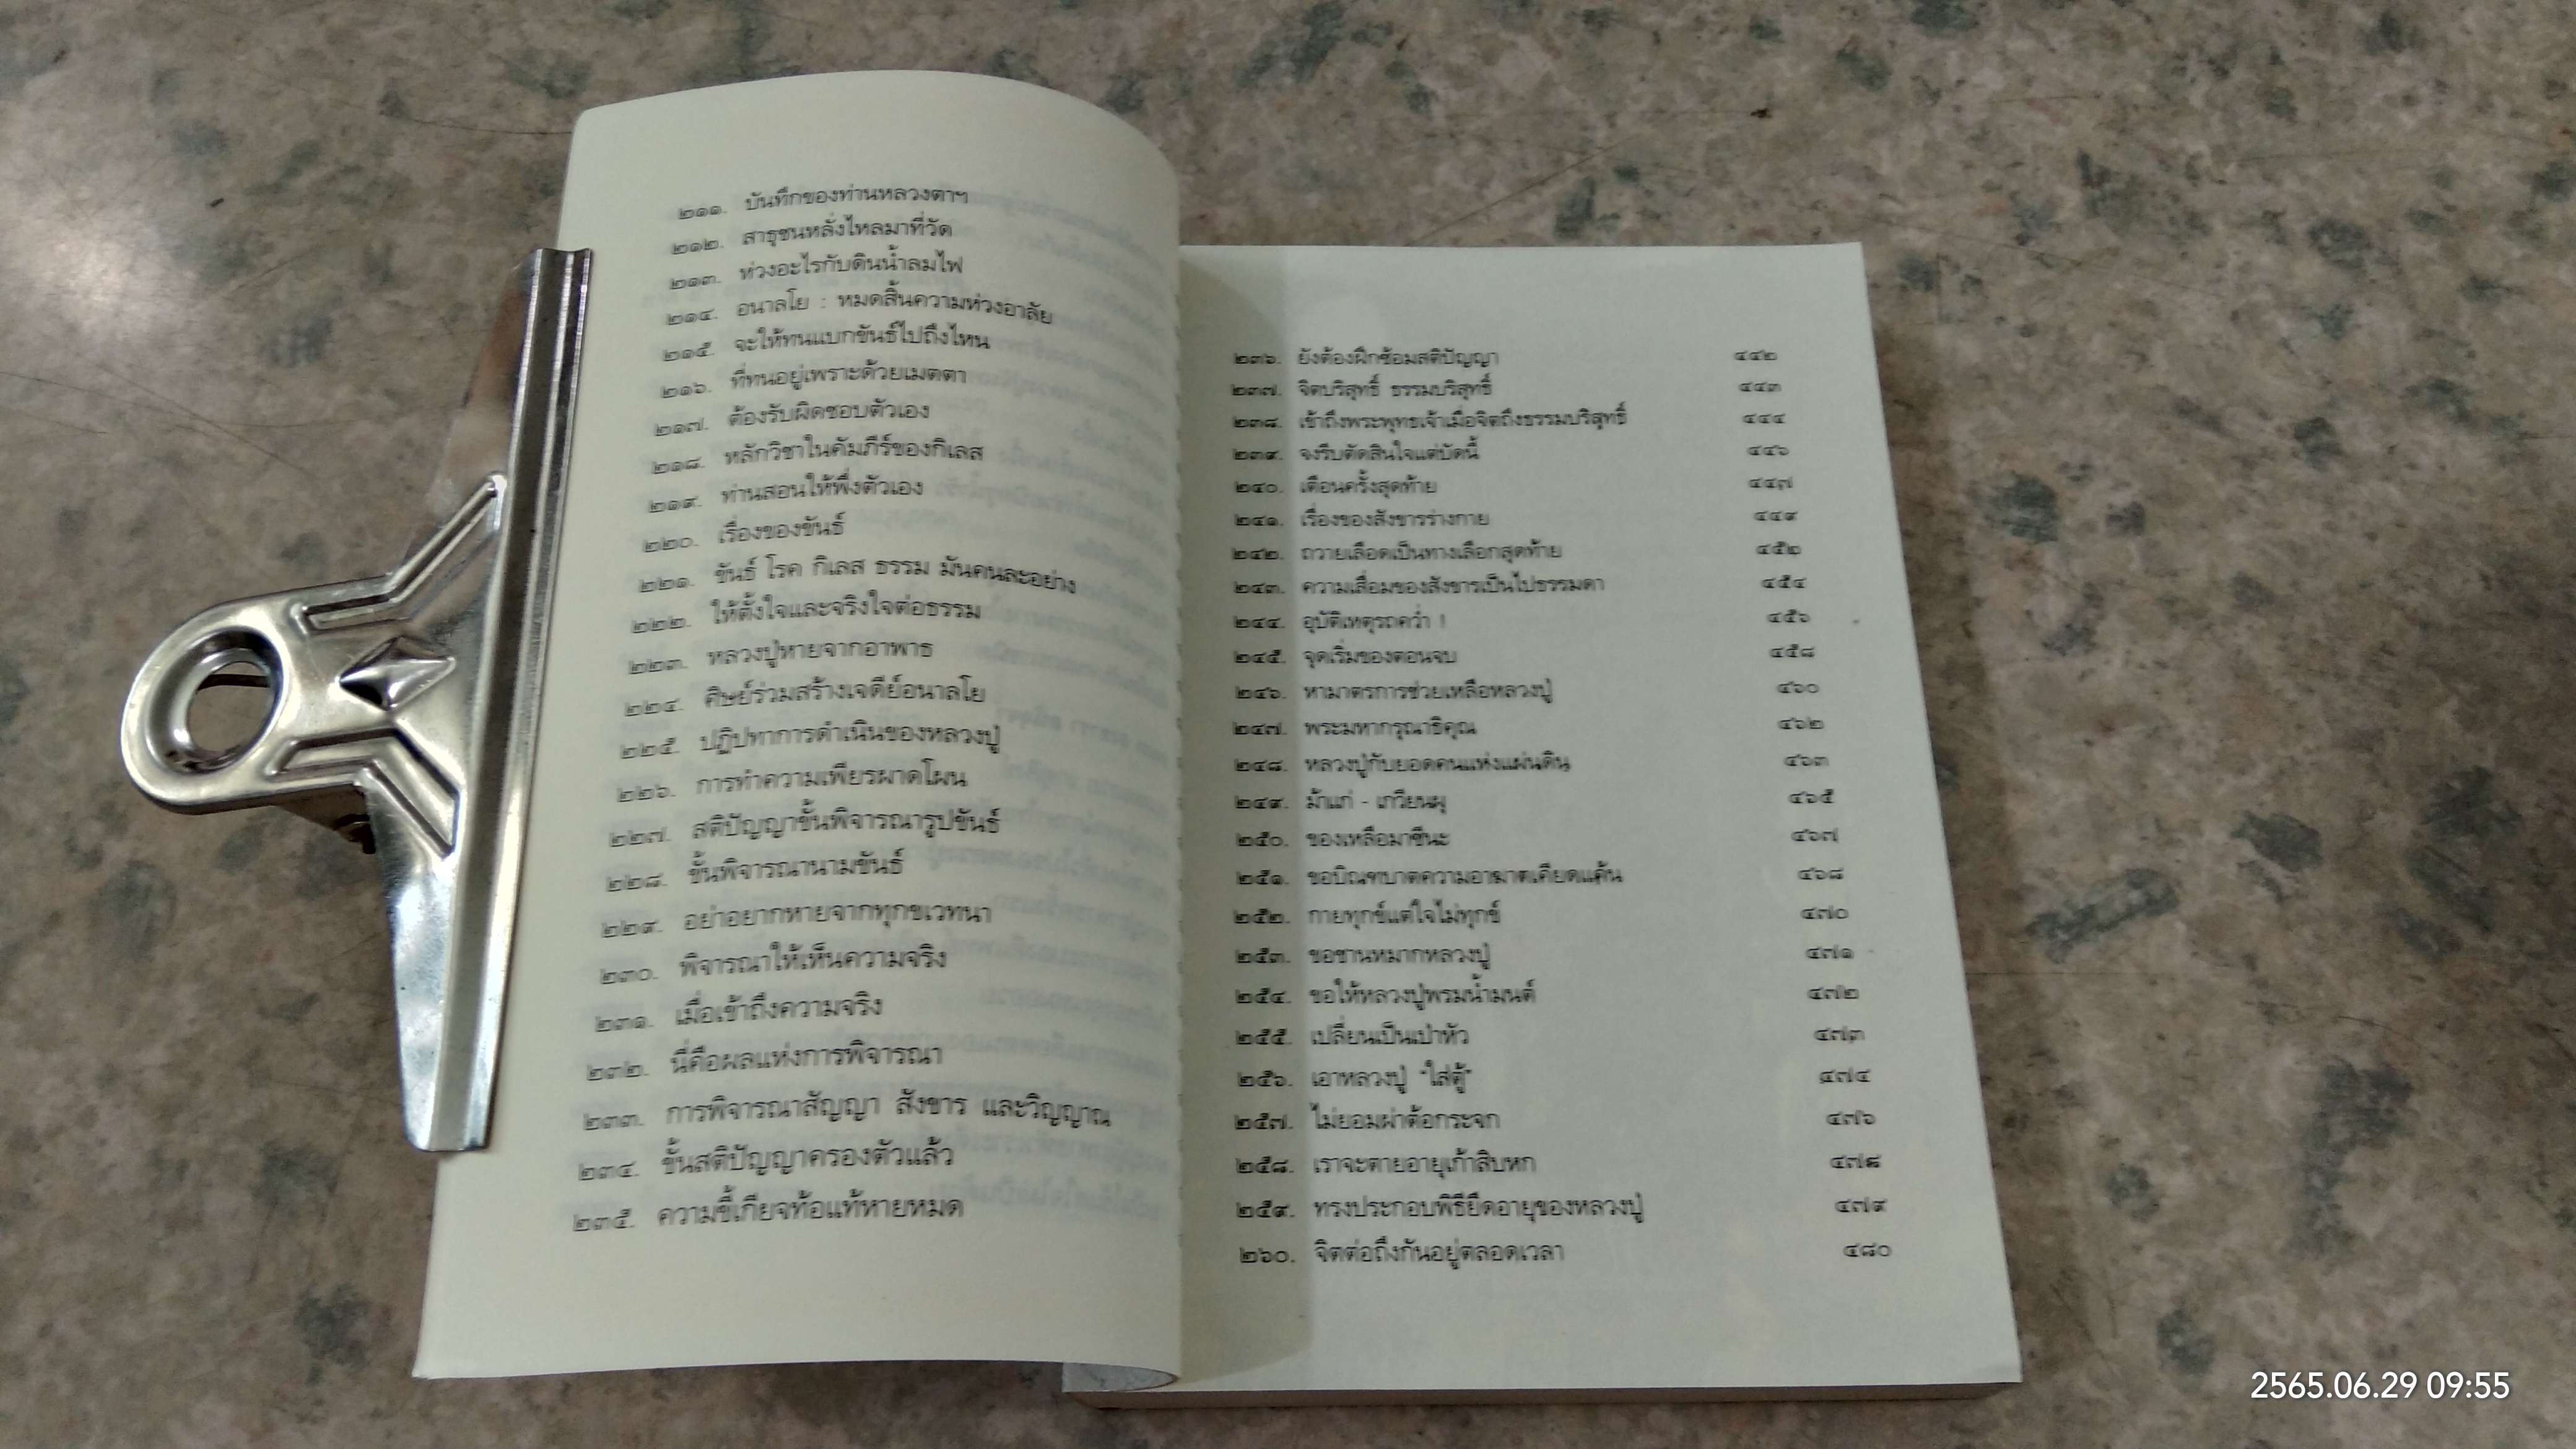 ๒๑๑. บันทึกของท่านหลวงตาฯ
๒๑๒. สาธุชนหลั่งไหลมาที่วัด
๒๑๓. ห่วงอะไรกับดินน้ำลมไฟ
๒๑๔. อนาลโย : หมดสิ้นความห่วงอาลัย
๒๑๕. จะให้ทนแบกขันธ์ไปถึงไหน
๒๑๖. ที่ทนอยู่เพราะด้วยเมตตา
๒๑๗. ต้องรับผิดชอบตัวเอง
๒๑๘. หลักวิชาในคัมภีร์ของกิเลส
๒๑๙. ท่านสอนให้พึ่งตัวเอง
๒๒๐. เรื่องของขันธ์
๒๒๑. ขันธ์ โรค กิเลส ธรรม มันคนละอย่าง
๒๒๒. ให้ตั้งใจและจริงใจต่อธรรม
๒๒๓. หลวงปู่หายจากอาพาธ
๒๒๔. ศิษย์ร่วมสร้างเจดีย์อนาลโย
๒๒๕. ปฏิปทาการดำเนินของหลวงปู่
๒๒๖. การทำความเพียรผาดโผน
๒๒๗. สติปัญญาขั้นพิจารณารูปขันธ์
๒๒๘. ขั้นพิจารณานามขันธ์
๒๒๙. อย่าอยากหายจากทุกขเวทนา
๒๓๐. พิจารณาให้เห็นความจริง
๒๓๑. เมื่อเข้าถึงความจริง
๒๓๒. นี่คือผลแห่งการพิจารณา
๒๓๓. การพิจารณาสัญญา สังขาร และวิญญาณ
๒๓๔. ขั้นสติปัญญาครองตัวแล้ว
๒๓๕. ความขี้เกียจท้อแท้หายหมด
๒๓๖. ยังต้องฝึกซ้อมสติปัญญา ๔๔๒
๒๓๗. จิตบริสุทธิ์ ธรรมบริสุทธิ์ ๔๔๓
๒๓๘. เข้าถึงพระพุทธเจ้าเมื่อจิตถึงธรรมบริสุทธิ์ ๔๔๔
๒๓๙. จงรีบตัดสินใจแต่บัดนี้ ๔๔๖
๒๔๐. เตือนครั้งสุดท้าย ๔๔๗
๒๔๑. เรื่องของสังขารร่างกาย ๔๔๙
๒๔๒. ถวายเลือดเป็นทางเลือกสุดท้าย ๔๕๒
๒๔๓. ความเสื่อมของสังขารเป็นไปธรรมดา ๔๕๔
๒๔๔. อุบัติเหตุรถคว่ำ ! ๔๕๖
๒๔๕. จุดเริ่มของตอนจบ ๔๕๘
๒๔๖. หามาตรการช่วยเหลือหลวงปู่ ๔๖๐
๒๔๗. พระมหากรุณาธิคุณ ๔๖๒
๒๔๘. หลวงปู่กับยอดคนแห่งแผ่นดิน ๔๖๓
๒๔๙. ม้าแก่ - เกวียนผุ ๔๖๕
๒๕๐. ของเหลือมาซีนะ ๔๖๗
๒๕๑. ขอบิณฑบาตความอาฆาตเคียดแค้น ๔๖๘
๒๕๒. กายทุกข์แต่ใจไม่ทุกข์ ๔๗๐
๒๕๓. ขอชานหมากหลวงปู่ ๔๗๑
๒๕๔. ขอให้หลวงปู่พรมน้ำมนต์ ๔๗๒
๒๕๕. เปลี่ยนเป็นเป่าหัว ๔๗๓
๒๕๖. เอาหลวงปู่ "ใส่ตู้" ๔๗๔
๒๕๗. ไม่ยอมผ่าต้อกระจก ๔๗๖
๒๕๘. เราจะตายอายุเก้าสิบหก ๔๗๘
๒๕๙. ทรงประกอบพิธียืดอายุของหลวงปู่ ๔๗๙
๒๖๐. จิตต่อถึงกันอยู่ตลอดเวลา ๔๘๐
2565.06.29 09:55